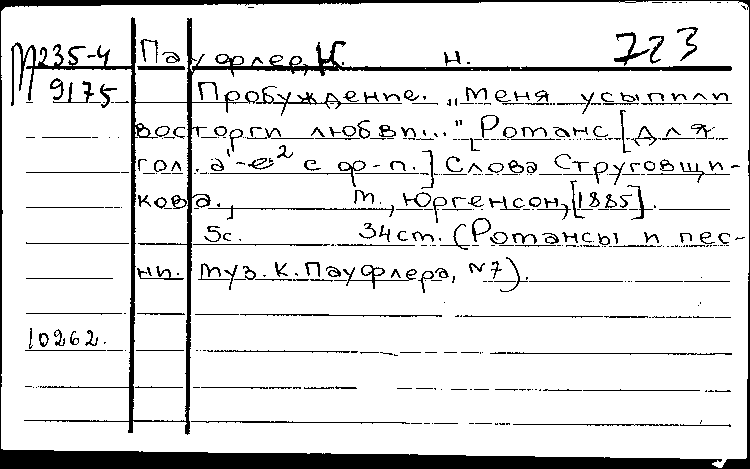 М235-4 Пауфлер, К. Н. 723
9175 Пробуждение. „Меня усыпили
восторги любви...", Романс [для
гол. а'-е² с ф-п.] Слова Струговщи-
кова. М., Юргенсон, [1885].
5с. 34см. (Романсы и пес-
ни. Муз. К. Пауфлера, №7).
10262.